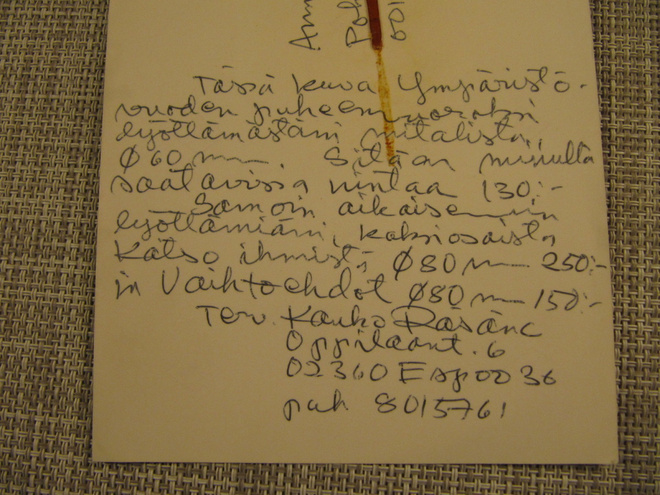 Ann
Poh
001
Tässä kuva Ympäristö-
vuoden puheenvuoroksi
lyöttämästäni mitalista,
Ø 60 mm. Sitä on minulta
saatavissa hintaa 130:-
Samoin aikaisemmin
lyöttämiäni, kaksiosaista
Katso ihmistä Ø80 mm 250:-
ja Vaihtoehdot Ø80 mm 150:-
Terv. Kauko Räsänen
Oppilaant. 6
02360 Espoo 36
puh 8015761